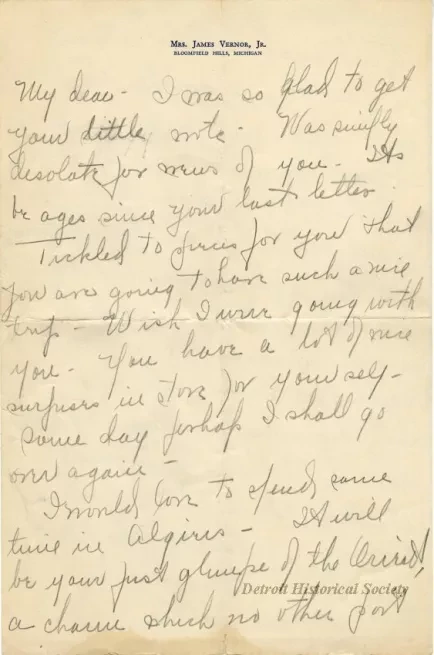 Mrs. James Vernor, Jr.
Bloomfield Hills, Michigan
My dear - I was so glad to get
your little note - Was simply
desolate for news of you - It
be ages since your last letter
Tickled to pieces for you that
you are going to have such a nice
trip - Wish I were going with
you - You have a lot of nice
surprises in store for yourself -
some day perhaps I shall go
over again -
I would love to spend some
time in Algiers - It will
be your first glimpse of the Orient,
Detroit Historical Society
a charm which no other port